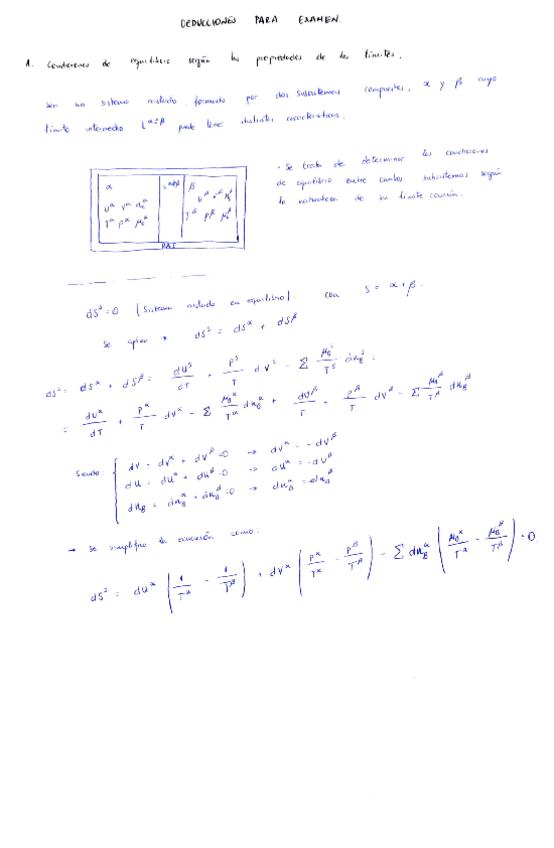 DEDUCCIONES PARA EXAMEN.
1. Condiciones de equilibrio según las propiedades de los límites.
Sea un sistema aislado formado por dos subsistemas compuestos, α y β cuyo
límite intermedio L^α=β puede tener distintas características.
α L^α=β β
U^α V^α n_B^α U^β V^β n_B^β
T^α P^α μ_B^α T^β P^β μ_B^β
PAI
· Se trata de determinar las condiciones
de equilibrio entre ambos subsistemas según
la naturaleza de su límite común.
dS^S = 0 [Sistema aislado en equilibrio]. con S = α + β.
Se aplica → dS^S = dS^α + dS^β
dS^S = dS^α + dS^β = dU^S/dT + P^S/T dV^S - Σ μ_B^S/T^S dn_B^S =
= dU^α/dT + P^α/T dV^α - Σ μ_B^α/T^α dn_B^α + dU^β/T + P^β/T dV^β - Σ μ_B^β/T^β dn_B^β
Siendo: { dV = dV^α + dV^β = 0 → dV^α = -dV^β
dU = dU^α + dU^β = 0 → dU^α = -dU^β
dn_B = dn_B^α + dn_B^β = 0 → dn_B^α = -dn_B^β
→ Se simplifica la ecuación como:
dS^S = dU^α (1/T^α - 1/T^β) + dV^α (P^α/T^α - P^β/T^β) - Σ dn_B^α (μ_B^α/T^α - μ_B^β/T^β) = 0